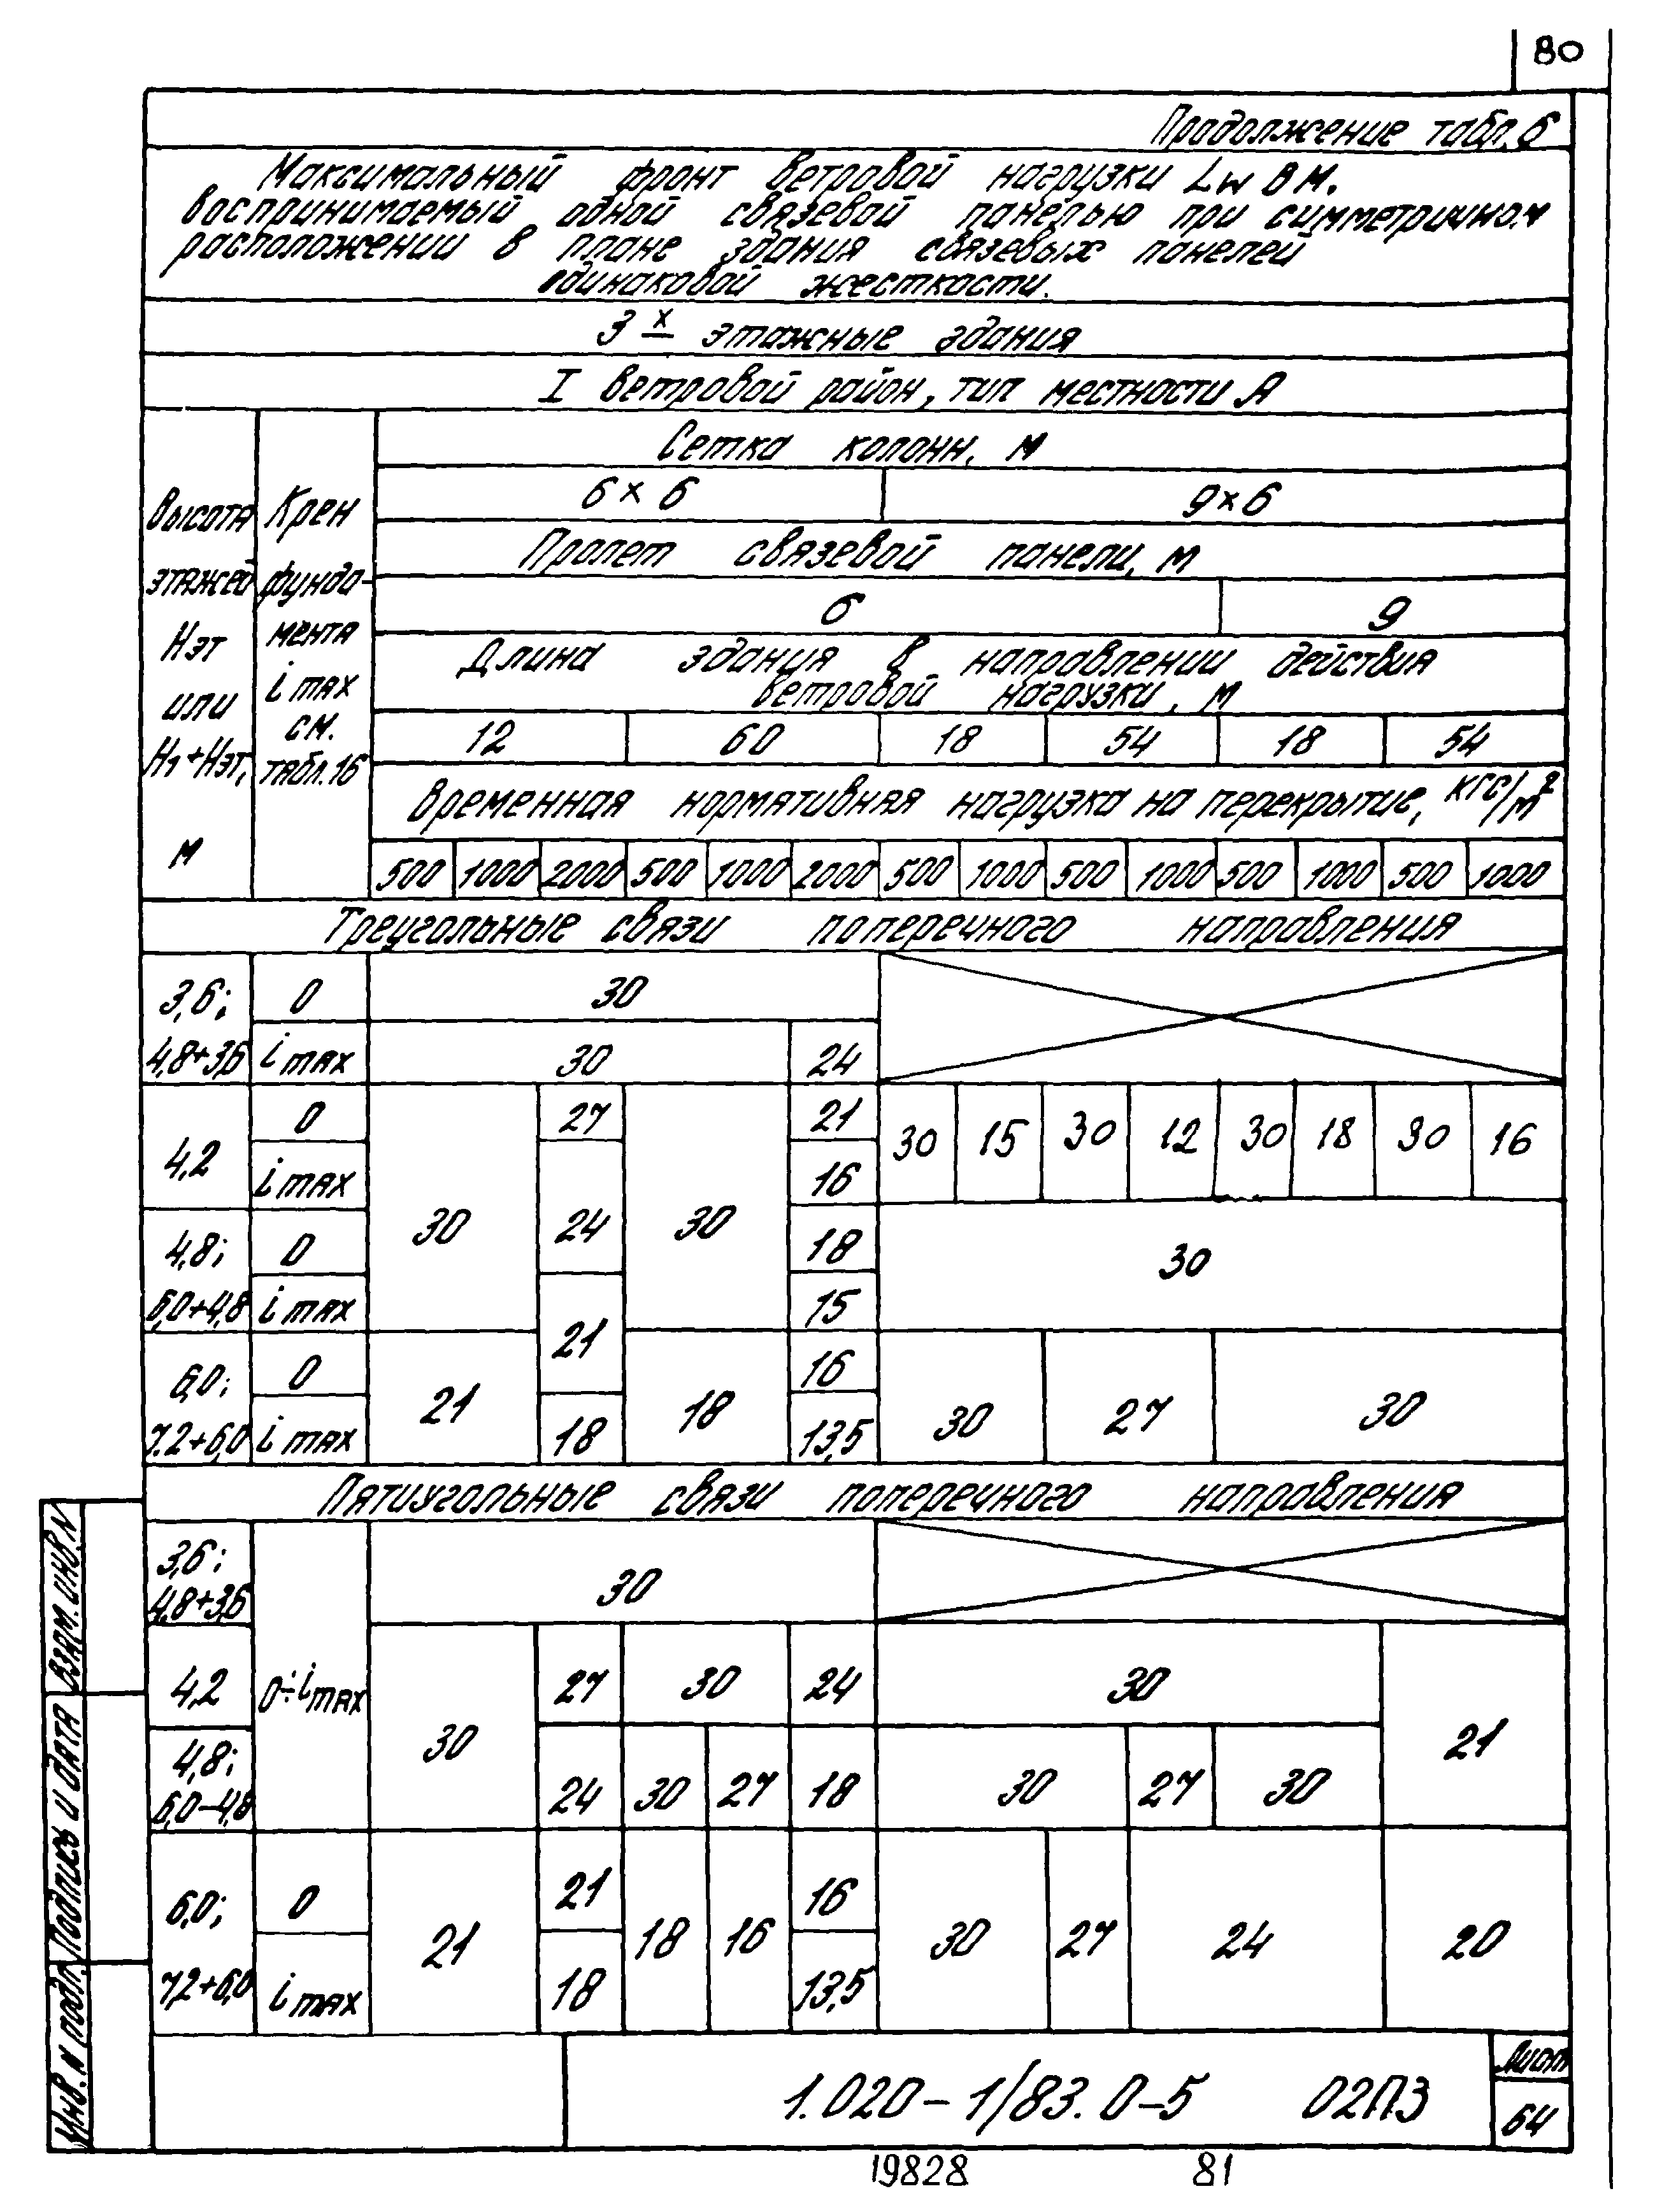 80
Продолжение табл. 6
Максимальный фронт ветровой нагрузки Lw в м.
воспринимаемый одной связевой панелью при симметричном
расположении в плане здания связевых панелей
одинаковой жесткости.
3х этажные здания
I ветровой район, тип местности А
Сетка колонн, м
6 × 6 9×6
Высота этажей Нэт или Н1+Нэт, м
Крен фунда- мента i max см. табл.16
Пролет связевой панели, м
6 9
Длина здания в направлении действия
ветровой нагрузки, м
12 60 18 54 18 54
Временная нормативная нагрузка на перекрытие, кгс/м²
500 1000 2000 500 1000 2000 500 1000 500 1000 500 1000 500 1000
Треугольные связи поперечного направления
3,6; 0 30
4,8+3,6 i max 30 24
4,2 0 27 21 30 15 30 12 30 18 30 16
i max 16
30 24 30
4,8; 0 18 30
6,0+4,8 i max 15
21
6,0; 0 16
21 18 30 27 30
7.2+6,0 i max 18 13,5
Пятиугольные связи поперечного направления
3,6;
4,8+3,6 30
4,2 0÷i max 27 30 24 30
30 21
4,8;
6,0-4,8 24 30 27 18 30 27 30
6,0; 0 21 16
21 18 16 30 27 24 20
7,2+6,0 i max 18 13,5
Взам. инв. N
Подпись и дата
Инв. N подл.
1.020-1/83. 0-5 02ПЗ
Лист
64
19828 81